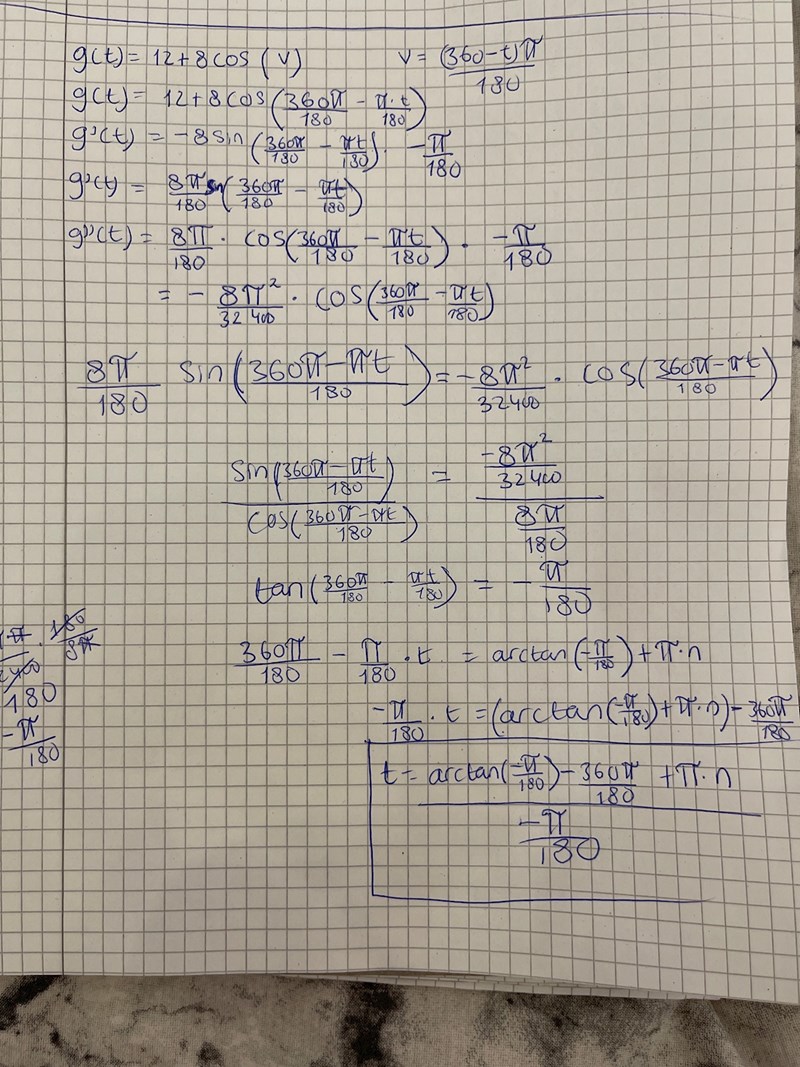 g(t) = 12 + 8 cos (v)    v = (360-t)π/180
g(t) = 12 + 8 cos (360π/180 - π·t/180)
g'(t) = -8 sin (360π/180 - πt/180) · -π/180
g'(t) = 8π/180 sin (360π/180 - πt/180)
g''(t) = 8π/180 · cos(360π/180 - πt/180) · -π/180
= - 8π²/32400 · cos(360π/180 - πt/180)
8π/180 sin(360π-πt/180) = -8π²/32400 · cos(360π-πt/180)
sin(360π-πt/180)/cos(360π-πt/180) = -8π²/32400 / 8π/180
tan(360π/180 - πt/180) = -π/180
180/8π
180
-π/180
360π/180 - π/180 · t = arctan(-π/180) + π·n
-π/180 · t = (arctan(-π/180) + π·n) - 360π/180
t = arctan(-π/180) - 360π/180 + π·n / -π/180